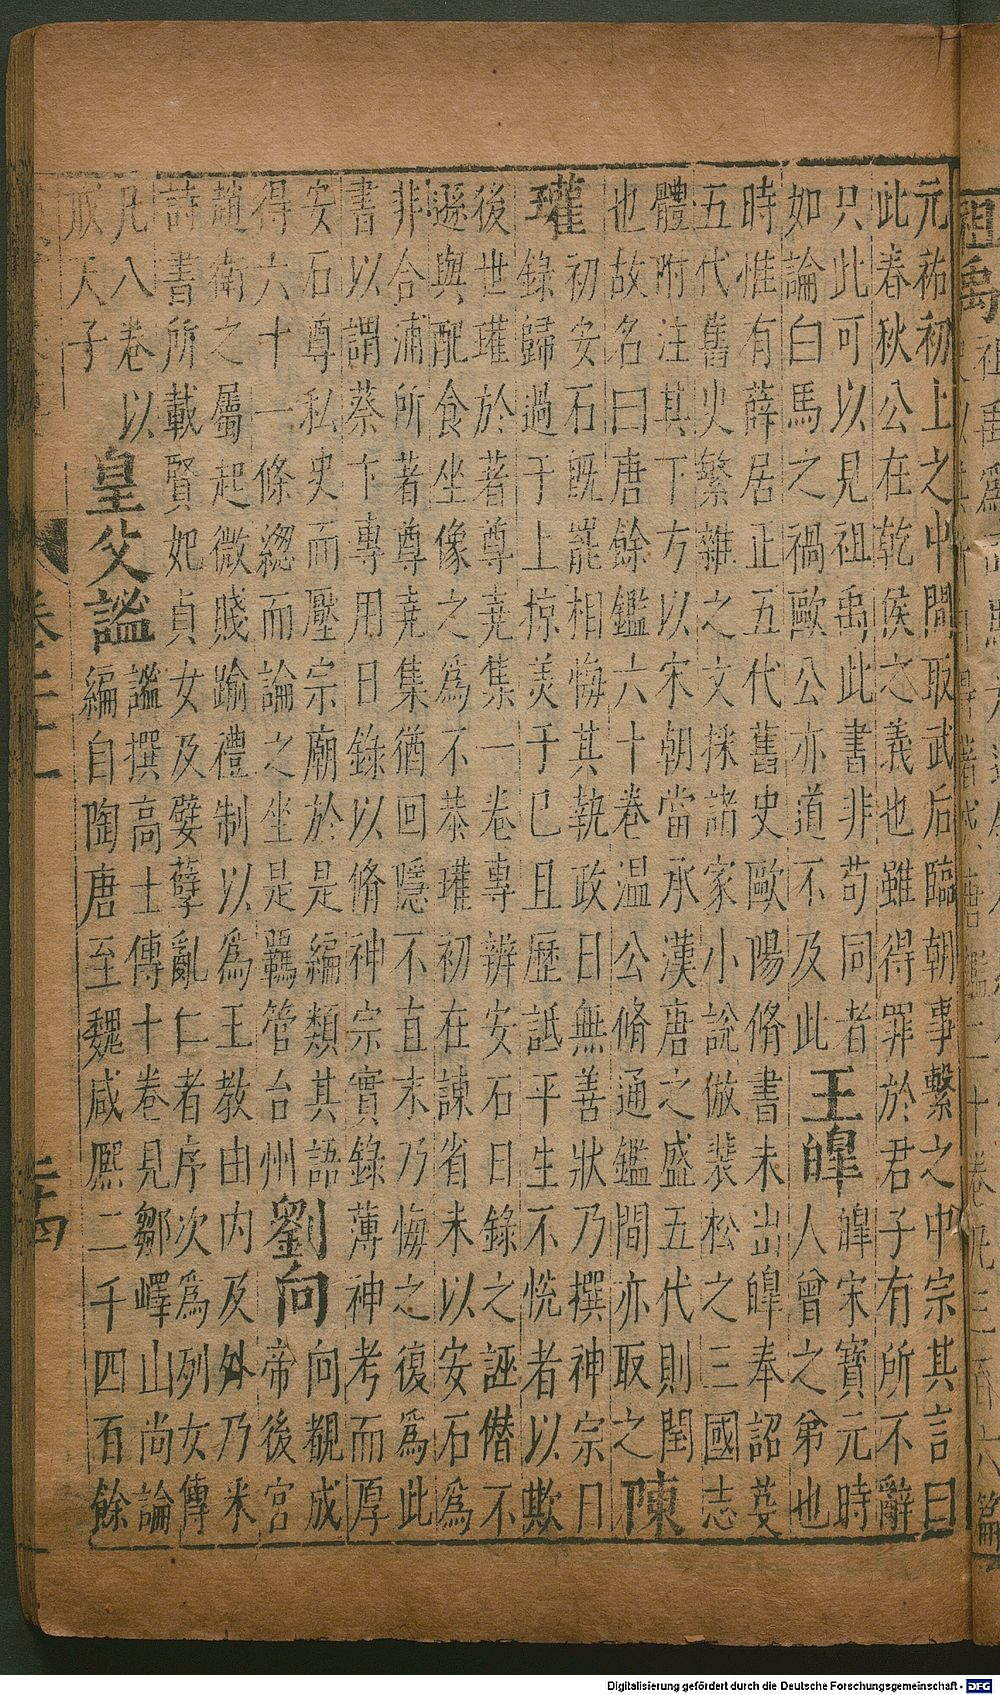 元祐初上之中間取武后臨朝事繫之中宗其言曰
此春秋公在乾侯之義也雖得罪於君子有所不辭
只此可以見祖禹此書非苟同者
如論白馬之禍歐公亦道不及此
王皥
皥宋寶元時
人曾之弟也
時惟有薛居正五代舊史歐陽脩書未出皥奉詔芟
五代舊史繁雜之文採諸家小說倣裴松之三國志
體附注其下方以宋朝當承漢唐之盛五代則閏
也故名曰唐餘鑑六十卷温公脩通鑑間亦取之
陳
瓘
初安石既罷相悔其執政日無善狀乃撰神宗日
錄歸過于上掠美于已且歷詆平生不恱者以欺
後世瓘於著尊堯集一卷專辨安石日錄之誣僭不
遜與配食坐像之為不恭瓘初在諫省未以安石為
非合浦所著尊堯集猶回隱不直末乃悔之復為此
書以謂蔡卞專用日錄以脩神宗實錄薄神考而厚
安石尊私史而壓宗廟於是編類其語
得六十一條緫而論之坐是羈管台州
劉向
向覩成
帝後宮
趙衛之屬起微賤踰禮制以為王教由内及外乃采
詩書所載賢妃貞女及嬖孽亂仁者序次為列女傳
凡八卷以
戒天子
皇父謐
謐撰高士傳十卷見鄒嶧山尚論
編自陶唐至魏咸熙二千四百餘
卷二十一
二十四
祖禹
Digitalisierung gefördert durch die Deutsche Forschungsgemeinschaft - DFG